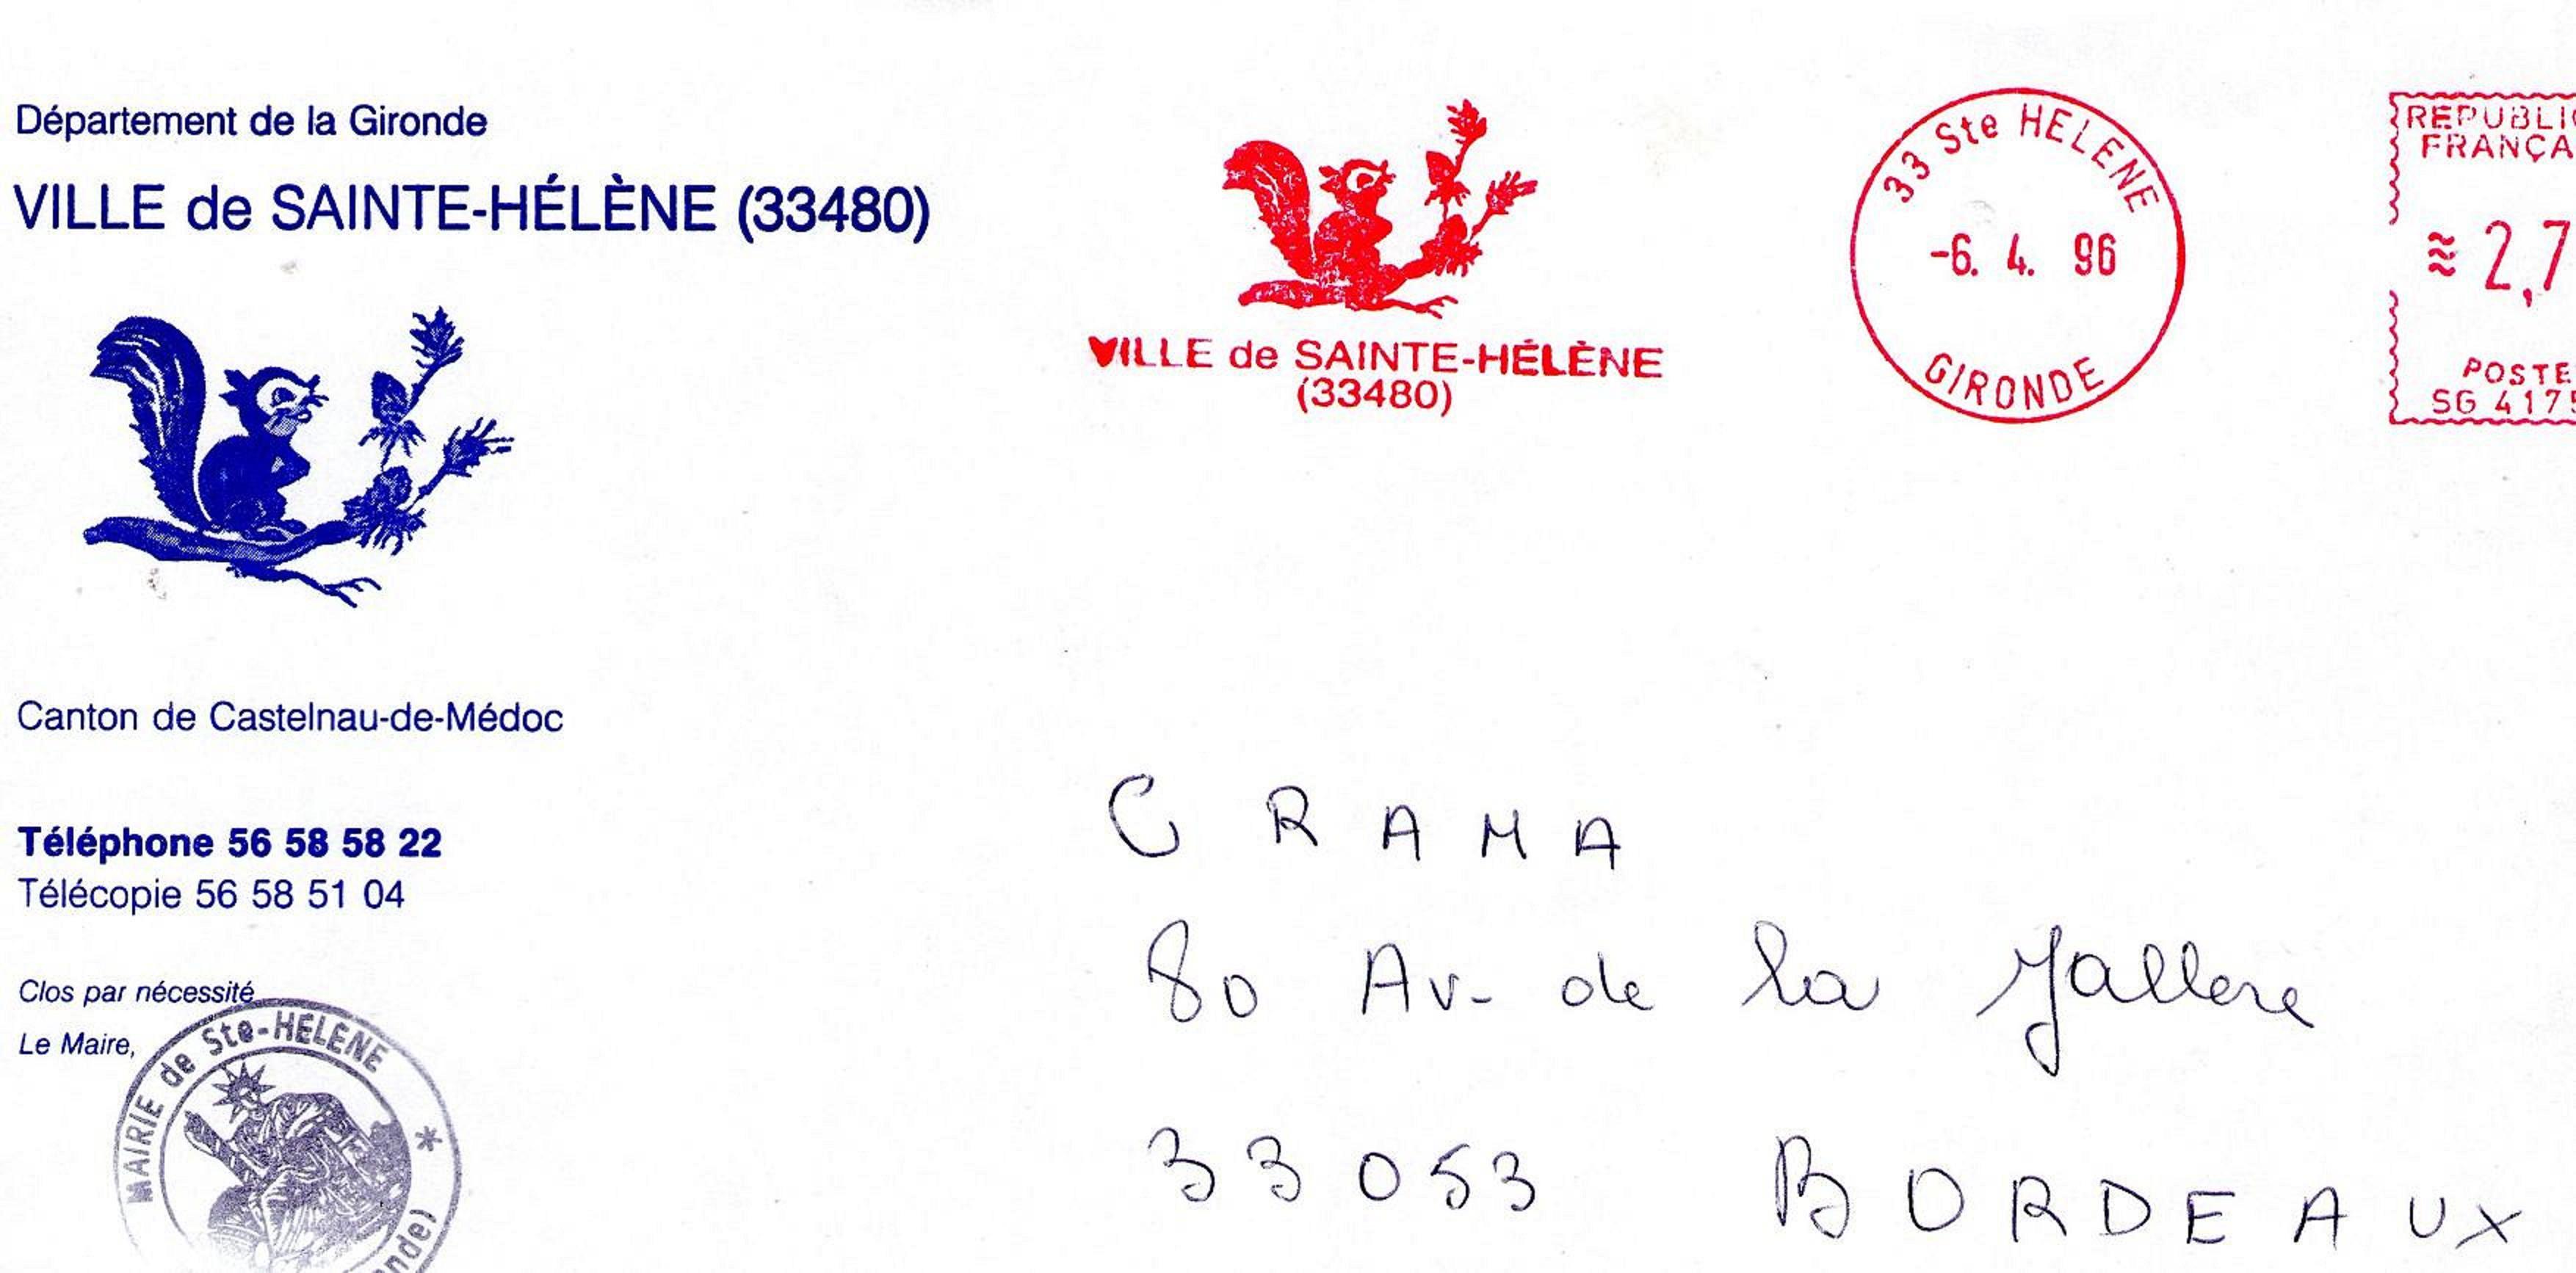 Département de la Gironde
VILLE de SAINTE-HÉLÈNE (33480)
Canton de Castelnau-de-Médoc
Téléphone 56 58 58 22
Télécopie 56 58 51 04
Clos par nécessité
Le Maire,
MAIRIE de Ste-HELENE *
VILLE de SAINTE-HÉLÈNE
(33480)
33 Ste HELENE
-6. 4. 96
GIRONDE
REPUBLI
FRANÇA
2,7
POSTE
SG 4175
C R A M A
80 Av- de la Jallere
33053 BORDEAUX